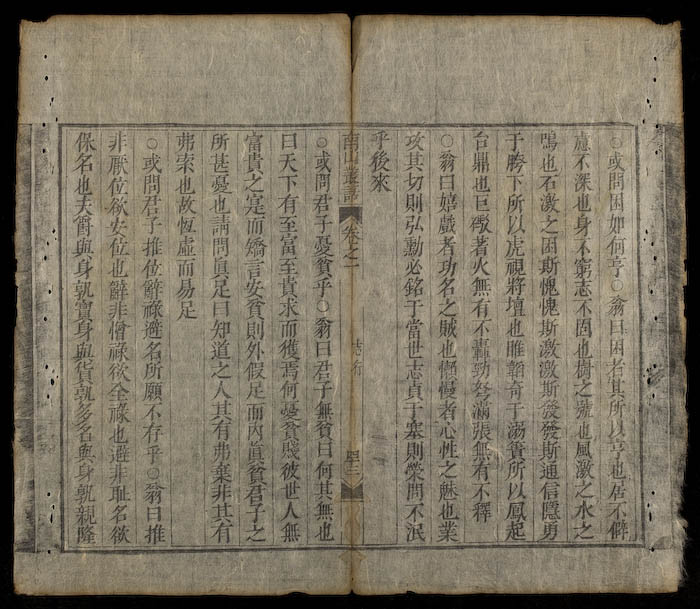 ○或問困如何亨○翁曰困者其所以亨也居不僻
慮不深也身不窮志不固也樹之號也風激之水之
鳴也石激之困斯愧愧斯激激斯發發斯通信隱勇
于胯下所以虎視將壇也雎韜奇于溺簀所以鳳起
台鼎也巨礮著火無有不轟勁弩滿張無有不釋
○翁曰嬉戲者功名之賊也懶慢者心性之魅也業
攻其切則弘勳必銘于當世志貞于塞則榮問不泯
乎後來
南山叢 卷之一 志 四三
○或問君子憂貧乎○翁曰君子無貧曰何其無也
曰天下有至富至貴求而獲焉何憂貧賤彼世人無
富貴之寔而矯言安貧則外假足而內眞貧君子之
所甚憂也請問眞足曰知道之人其有弗棄非其有
弗索也故恆虛而易足
○或問君子推位辭祿避名所願不存乎○翁曰推
非厭位欲安位也辭非憎祿欲全祿也避非恥名欲
保名也夫爵與身孰寶身與貨孰多名與身孰親隆